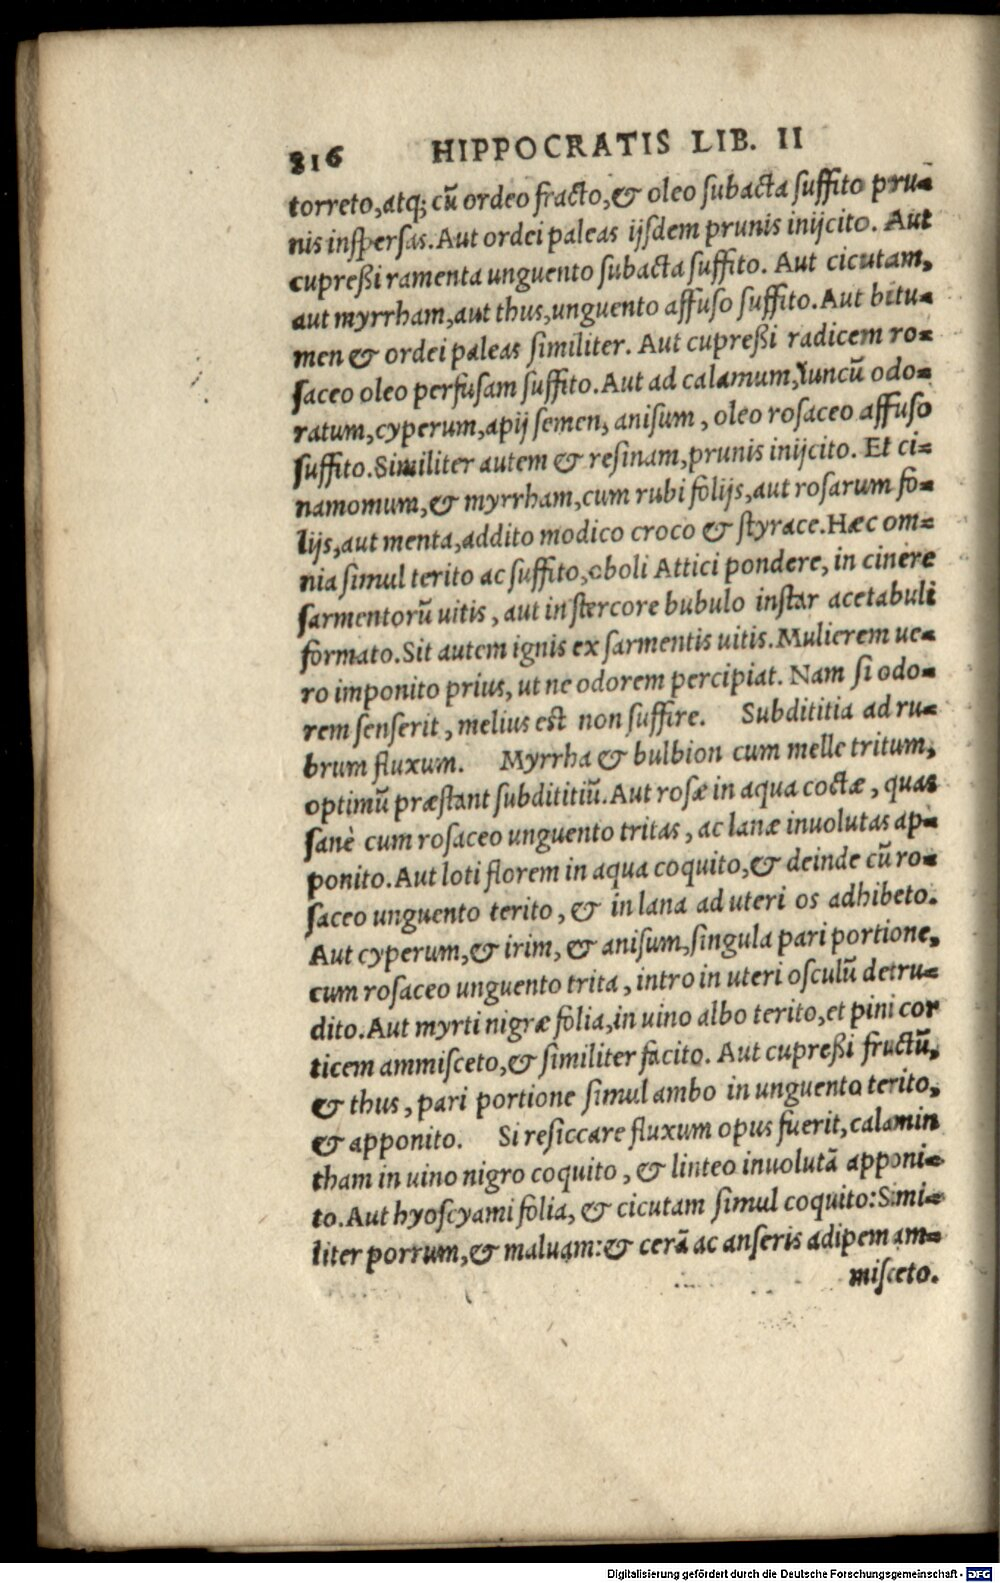 816 HIPPOCRATIS LIB. II
torreto,atq; cũ ordeo fracto,& oleo subacta suffito pru-
nis inspersas. Aut ordei paleas ijsdem prunis inijcito. Aut
cupreßi ramenta unguento subacta suffito. Aut cicutam,
aut myrrham,aut thus,unguento affuso suffito. Aut bitu-
men & ordei paleas similiter. Aut cupreßi radicem ro-
saceo oleo perfusam suffito. Aut ad calamum, Iuncũ odo-
ratum,cyperum,apij semen, anisum, oleo rosaceo affuso
suffito. Similiter autem & resinam,prunis inijcito. Et ci-
namomum,& myrrham,cum rubi folijs,aut rosarum fo-
lijs,aut menta,addito modico croco & styrace. Hæc om-
nia simul terito ac suffito,oboli Attici pondere, in cinere
sarmentorũ uitis, aut in stercore bubulo instar acetabuli
formato. Sit autem ignis ex sarmentis uitis. Mulierem ue-
ro imponito prius, ut ne odorem percipiat. Nam si odo-
rem senserit, melius est non suffire. Subdititia ad ru-
brum fluxum. Myrrha & bulbion cum melle tritum,
optimũ præstant subdititiũ. Aut rosæ in aqua coctæ, quas
sanè cum rosaceo unguento tritas, ac lanæ inuolutas ap-
ponito. Aut loti florem in aqua coquito,& deinde cũ ro-
saceo unguento terito, & in lana ad uteri os adhibeto.
Aut cyperum,& irim, & anisum,singula pari portione,
cum rosaceo unguento trita, intro in uteri osculũ detru-
dito. Aut myrti nigræ folia,in uino albo terito,et pini cor
ticem ammisceto,& similiter facito. Aut cupreßi fructũ,
& thus, pari portione simul ambo in unguento terito,
& apponito. Si resiccare fluxum opus fuerit,calamin
tham in uino nigro coquito, & linteo inuolutã apponi-
to. Aut hyoscyami folia, & cicutam simul coquito: Simi-
liter porrum,& maluam:& cerã ac anseris adipem am-
misceto.
Digitalisierung gefördert durch die Deutsche Forschungsgemeinschaft - DFG